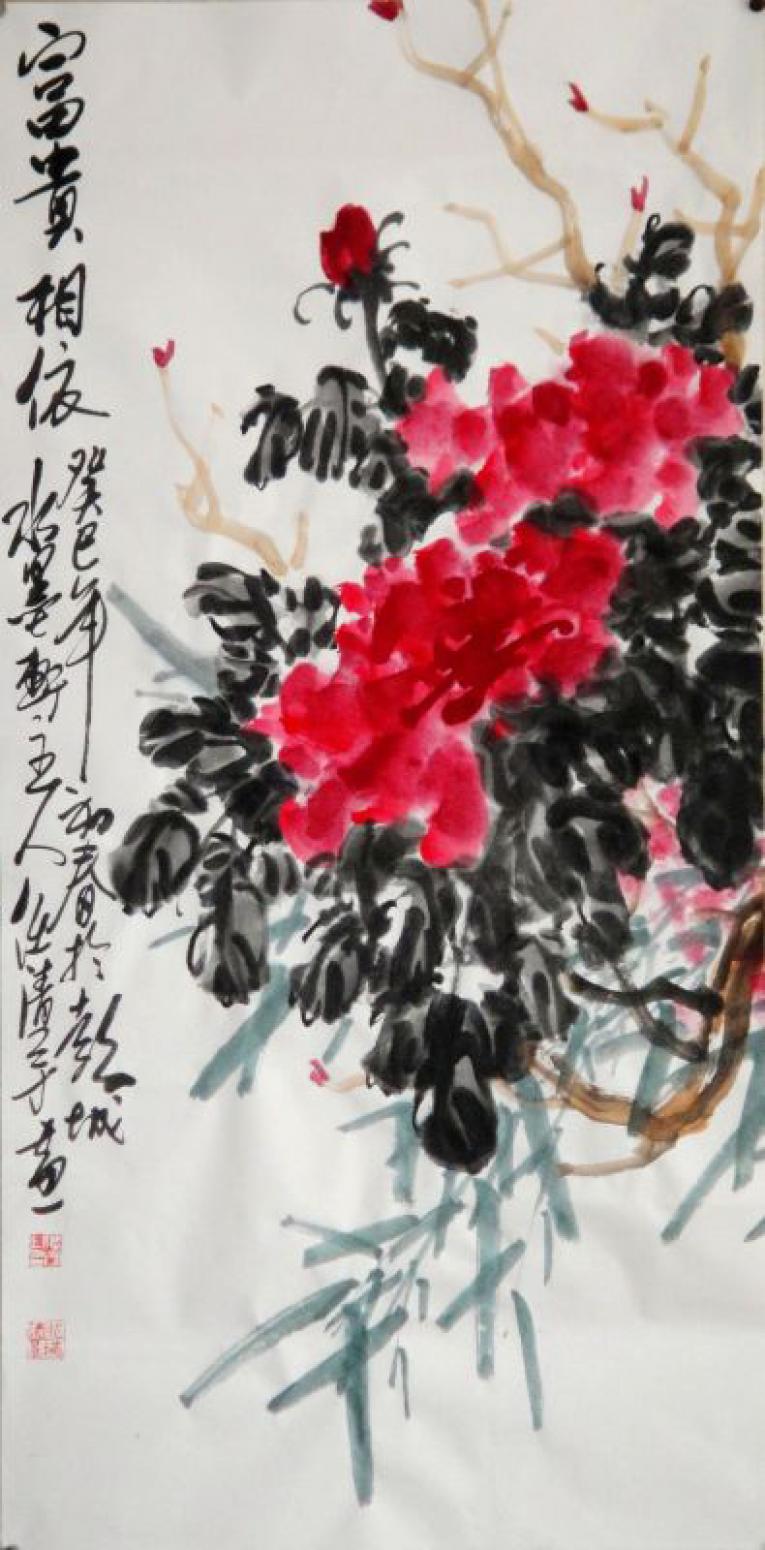 富貴相依
癸巳年初春於彭城
水墨軒主人任清子畫